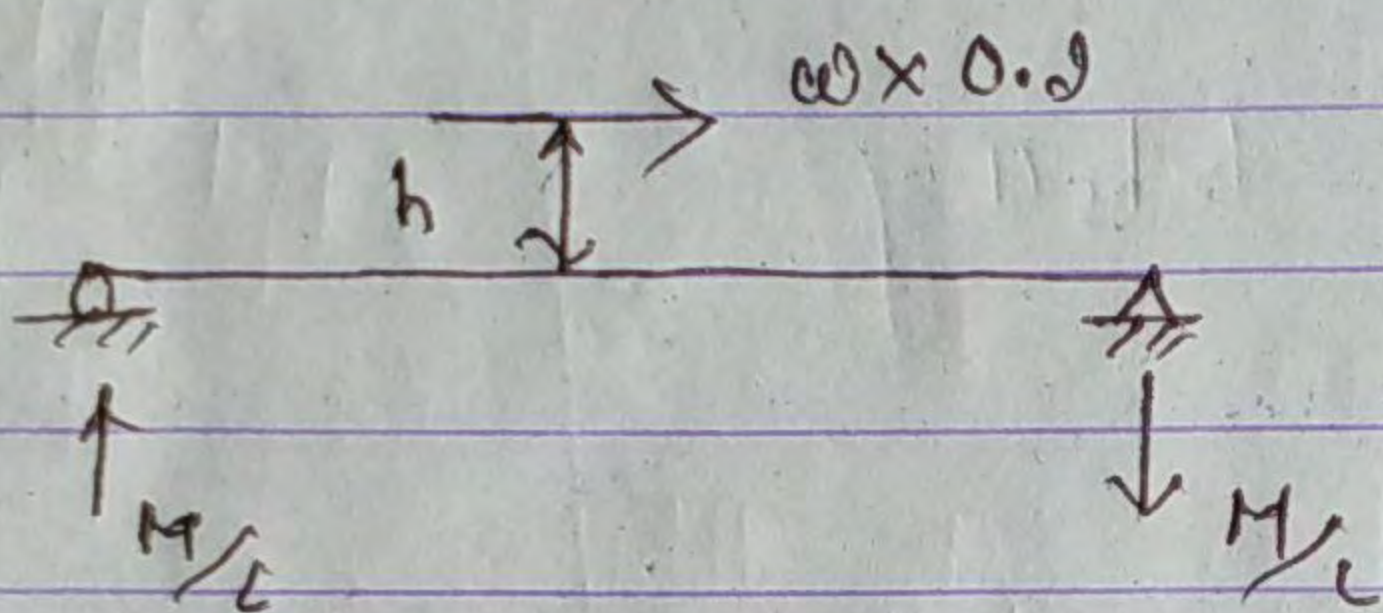 ω × 0.2
h
M/L
M/L